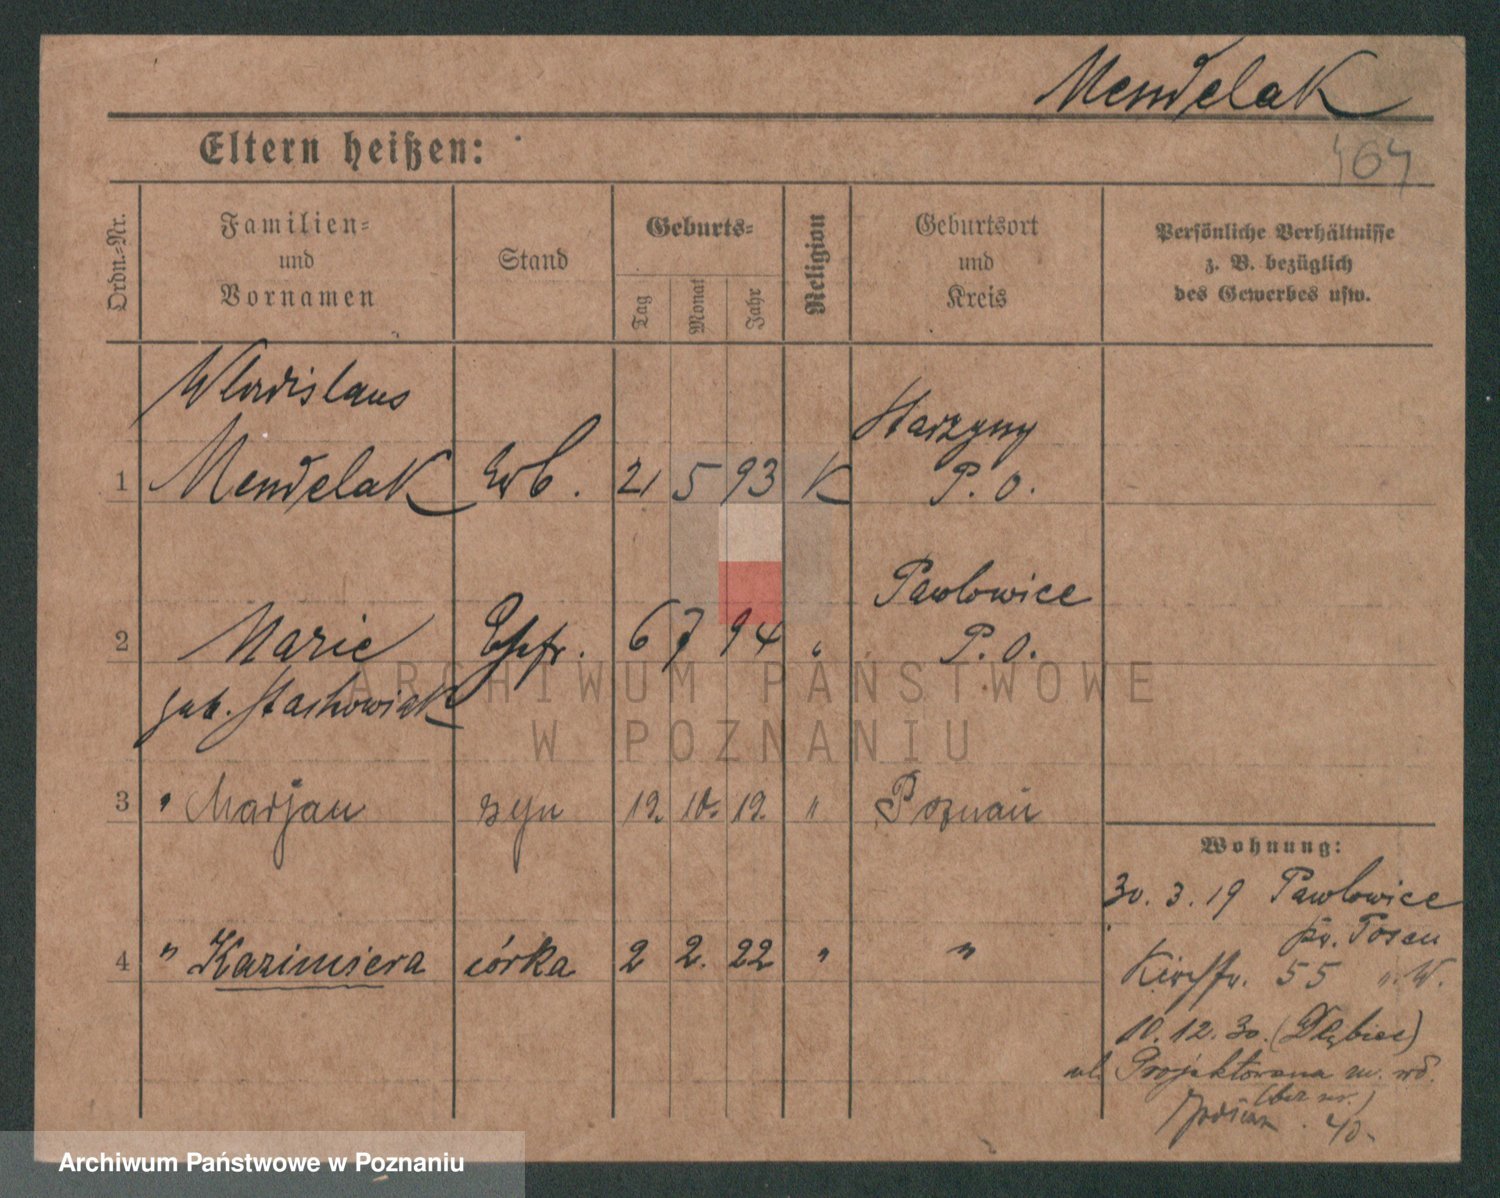 Mendelak
Eltern heißen:
464
Ordn.-Nr.
Familien-
und
Vornamen
Stand
Geburts-
Tag
Monat
Jahr
Religion
Geburtsort
und
Kreis
Persönliche Verhältnisse
z. B. bezüglich
des Gewerbes usw.
Wladislaus
1 Mendelak Arb. 21 5 93 K
Starzyny
P. O.
Pawlowice
2 Marie Ehefr. 6 7 94 " P. O.
geb. Stachowiak
3 " Marjan syn 19. 10. 19. " Poznań
4 " Kazimiera córka 2 2. 22 " "
Wohnung:
30. 3. 19 Pawlowice
Kr. Posen
Kirchstr. 55 n. W.
10. 12. 30. (Dębiec)
ul. Projektowana
(bez nr.)
ARCHIWUM PAŃSTWOWE
W POZNANIU
Archiwum Państwowe w Poznaniu